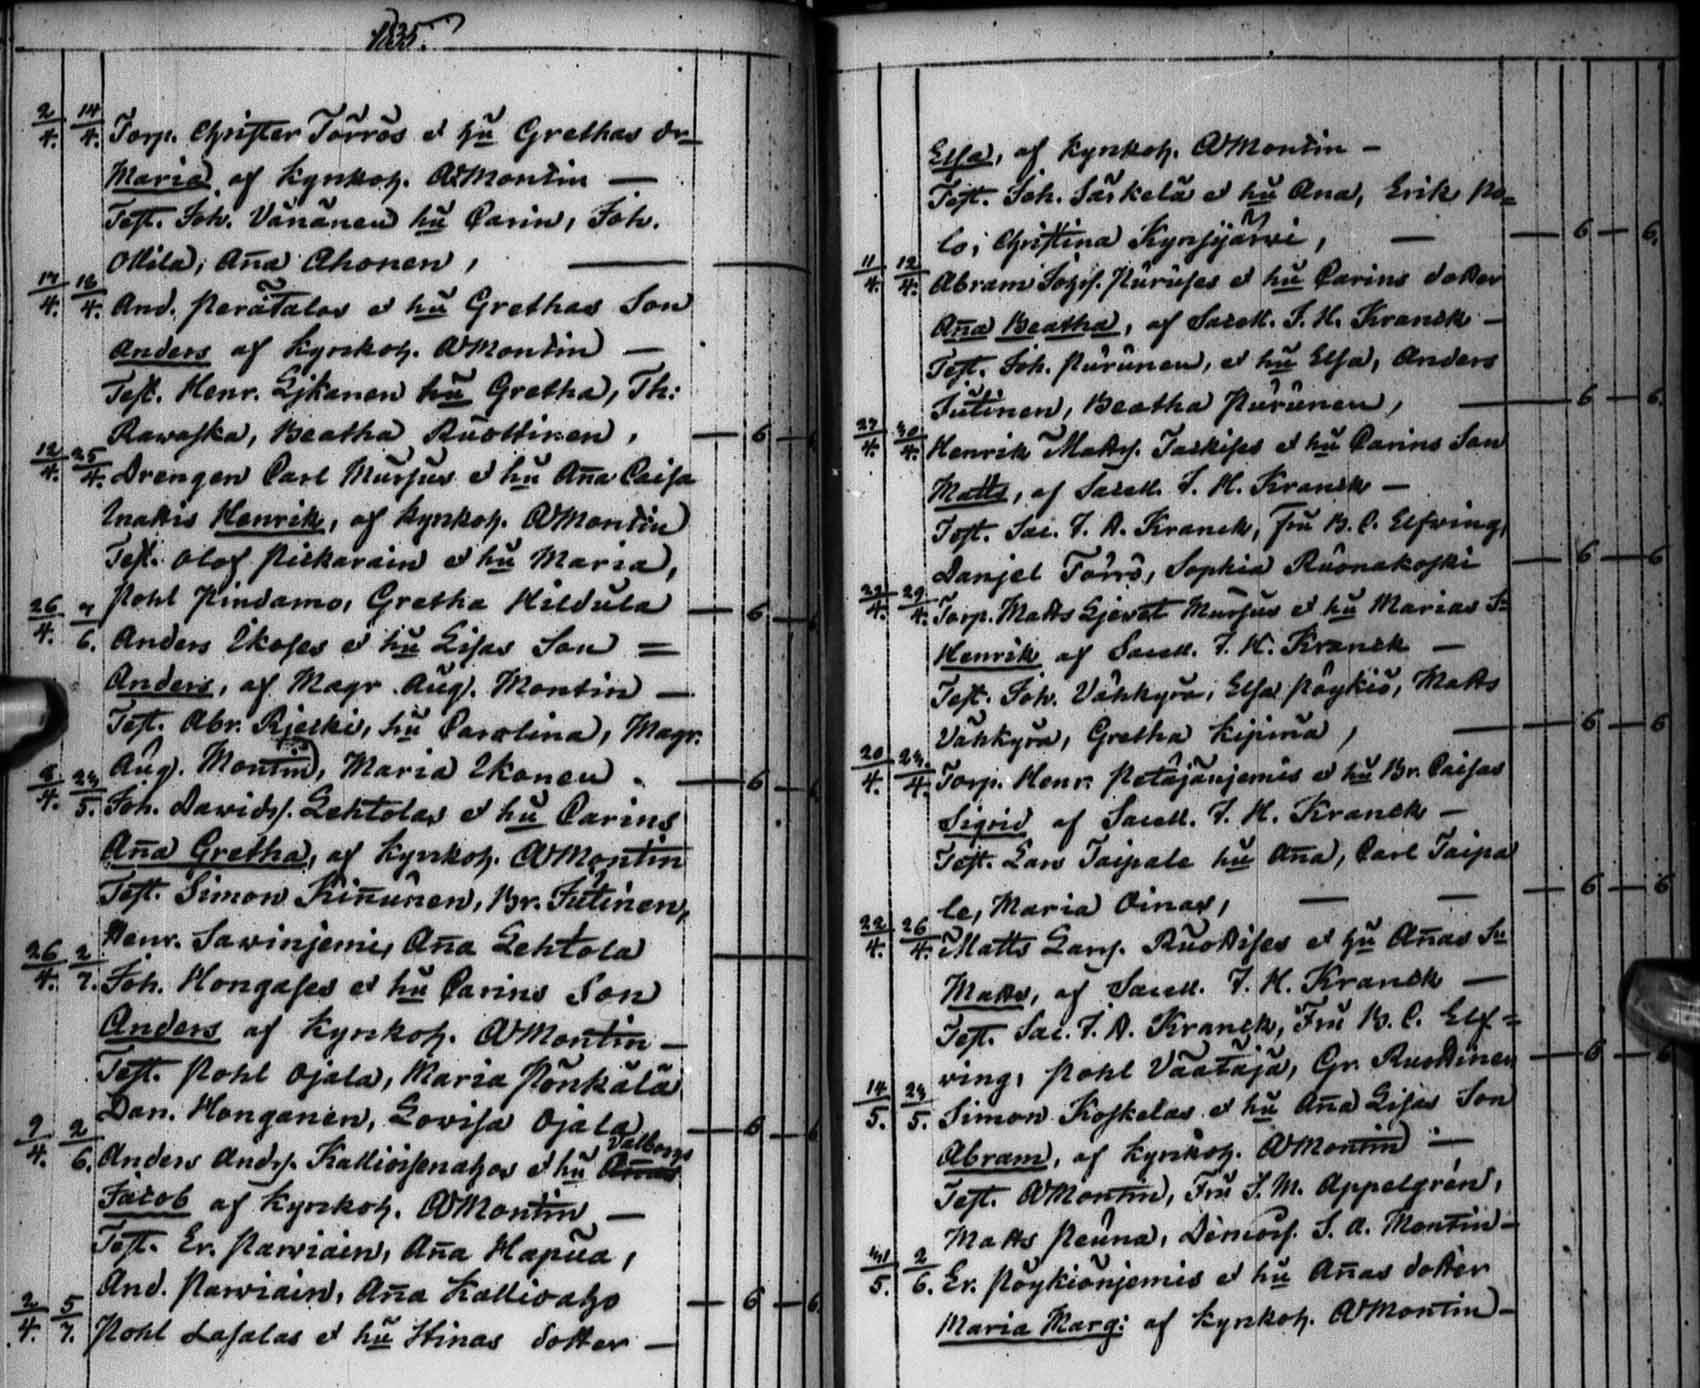 1835.
2/4. 14/4. Torp. Christer Törrös et hu Grethas dr
Maria, af kyrkoh. A Montin —
Test. Joh. Vänänen hu Carin, Joh.
Ollila, Aña Ahonen,
14/4. 16/4. And. Perätalos et hu Grethas Son
Anders af kyrkoh. A Montin —
Test. Henr. Ljkanen hu Gretha, Th:
Rawaska, Beatha Ruottinen, 6
12/4. 25/4. Drengen Carl Mursus et hu Aña Caisa
Inattis Henrik, af kyrkoh. A Montin
Test. Olof Pickarain et hu Maria,
Pohl Pindamo, Gretha Hildula 6
26/4. 7/6. Anders Ikoses et hu Lisas Son =
Anders, af Magr. Aug. Montin —
Test. Abr. Rjecki, hu Carolina, Magr.
Aug. Montin, Maria Ikonen. 6
8/4. 23/5. Joh. Davids. Lehtolas et hu Carins
Aña Gretha, af kyrkoh. A Montin
Test. Simon Kiñunen, Br. Jutinen,
Henr. Sawinjemi, Aña Lehtola
26/4. 2/7. Joh. Hongases et hu Carins Son
Anders af kyrkoh. A Montin —
Test. Pohl Ojala, Maria Pönkälä
Dan. Honganen, Lovisa Ojala 6
9/4. 2/6. Anders Ands. Kallioisenahos et hu Añas Valborgs
Jacob af kyrkoh. A Montin —
Test. Er. Parviain, Aña Hapua,
And. Parviain, Aña Kallioaho 6 6
2/4. 5/7. Pohl Lasalas et hu Stinas dotter —
Elsa, af kyrkoh. A Montin —
Test. Joh. Särkelä et hu Ana, Erik Po=
lo, Christina Kynsijärvi, — 6 6.
11/4. 12/4. Abram Johs. Puruses et hu Carins dotter
Aña Beatha, af Sacell. J. H. Kranck —
Test. Joh. Purunen, et hu Elsa, Anders
Jutinen, Beatha Purunen, 6 6.
27/4. 30/4. Henrik Matts. Taskises et hu Carins Son
Matts, af Sacell. J. H. Kranck —
Test. Sac. J. A. Kranck, Fru B. C. Elfving,
Danjel Törrö, Sophia Ruonakoski 6 6
22/4. 29/4. Torp. Matts Ljevet Mursus et hu Marias S:
Henrik af Sacell. J. H. Kranck —
Test. Joh. Vähkyrä, Elsa Pöykiö, Matts
Vähkyrä, Gretha Kipinä, 6 6
20/4. 23/4. Torp. Henr. Petäjänjemis et hu Br. Caisas
Sigrid af Sacell. J. H. Kranck —
Test. Lars Taipale hu Aña, Carl Taipa
le, Maria Oinas, — 6 6
22/4. 26/4. Matts Lars. Ruottises et hu Añas Sn
Matts, af Sacell. J. H. Kranck —
Test. Sac. J. A. Kranck, Fru B. C. Elf=
ving, Pohl Väätäjä, Gr. Ruottinen 6 6
14/5. 23/5. Simon Koskelas et hu Aña Lisas Son
Abram, af kyrkoh. A Montin —
Test. A Montin, Fru J. M. Appelgrén,
Matts Peuna, Demois. S. A. Montin —
31/5. 2/6. Er. Pöykiönjemis et hu Añas dotter
Maria Marg: af kyrkoh. A Montin —